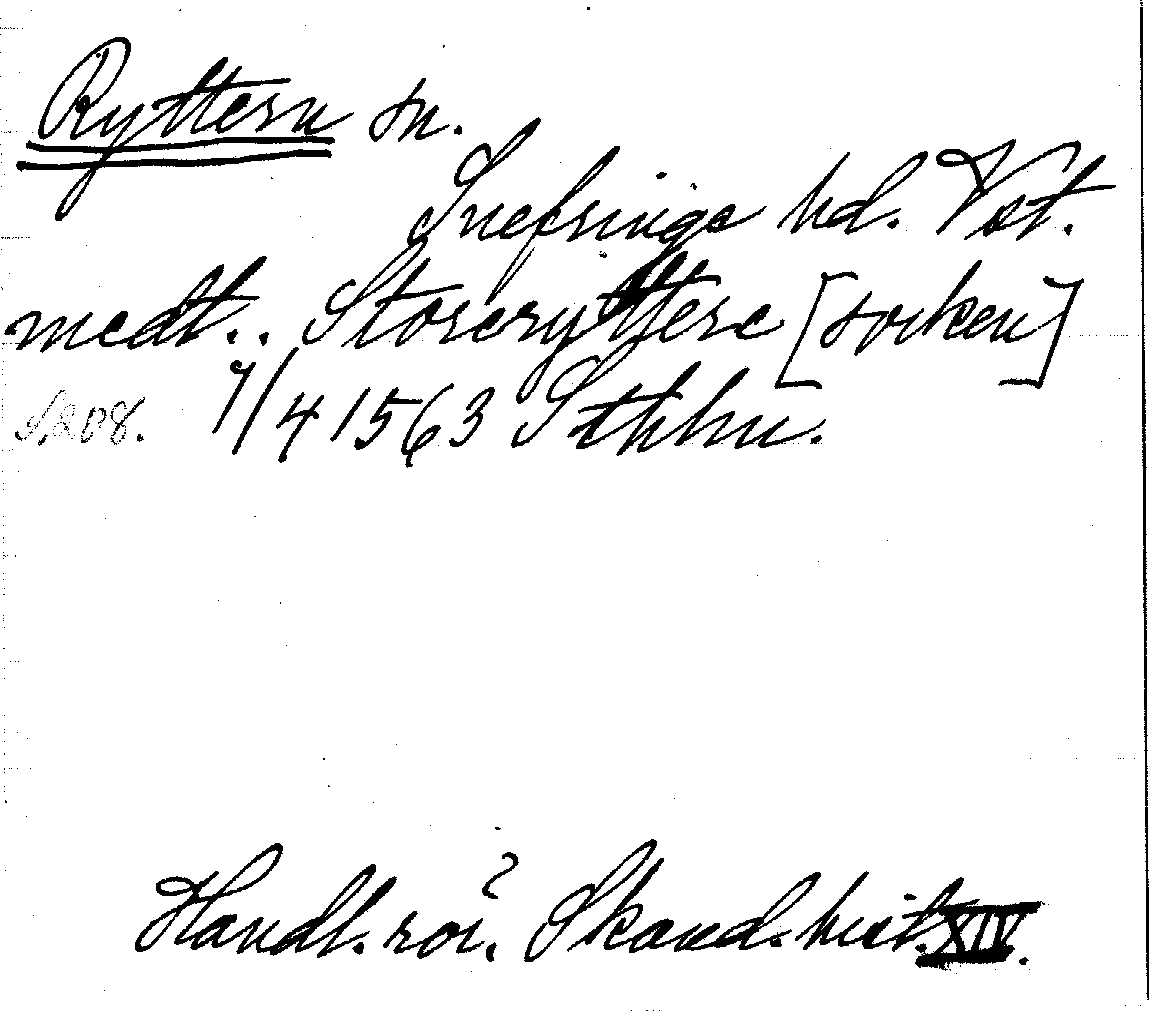 Ryttern sn.
Snefringe hd. Vst.
medt.. Storeryttere [socken]
S.208. 7/4 1563 Sthhm.
Handl. rör. Skand. hist. XIV.